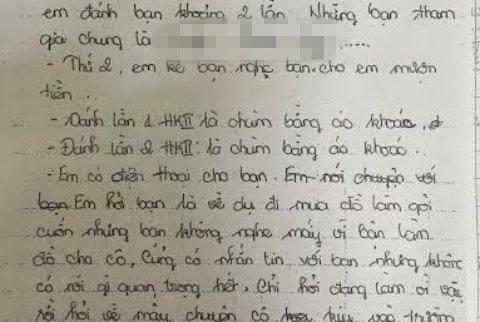 em đánh bạn khoảng 2 lần Những bạn tham
gia chung là .....
- Thứ 2, em kê bạn nghe bạn cho em mượn
tiền.
- Đánh lần 1 HKII là chùm bằng áo khoác,
- Đánh lần 2 HKII: là chùm bằng áo khoác.
- Em có điện thoại cho bạn. Em nói chuyện với
bạn. Em hỏi bạn là về dụ đi mua đồ làm gỏi
cuốn nhưng bạn không nghe máy vì bận làm
đồ cho cô, cũng có nhắn tin với bạn nhưng không
có nói gì quan trọng hết, chỉ hỏi đang làm gì vậy
rồi hỏi về mấy chuyện có